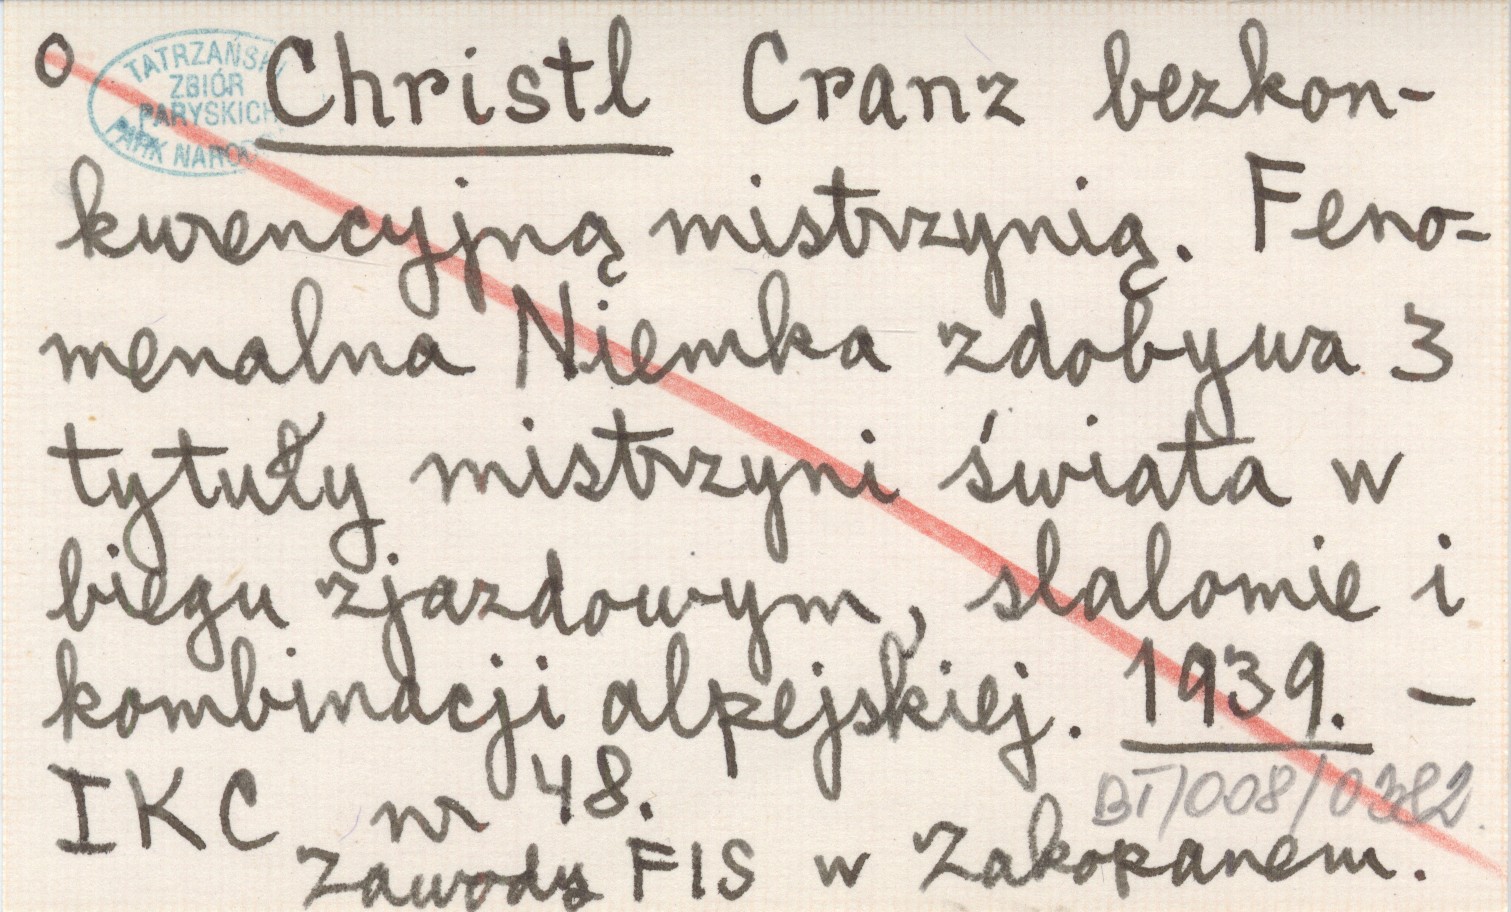 o Christl Cranz bezkon-
kurencyjną mistrzynią. Feno-
menalna Niemka zdobywa 3
tytuły mistrzyni świata w
biegu zjazdowym, slalomie i
kombinacji alpejskiej. 1939. –
IKC nr 48.
BT/008/0382
Zawody FIS w Zakopanem.
TATRZAŃSKI
ZBIÓR
PARYSKICH
PARK NAROD